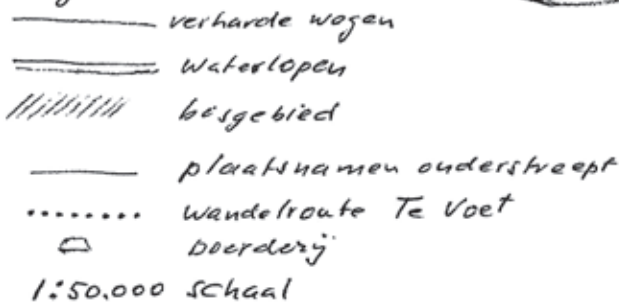 verharde wegen
waterlopen
bosgebied
plaatsnamen onderstreept
wandelroute Te Voet
boerderij
1:50.000 schaal